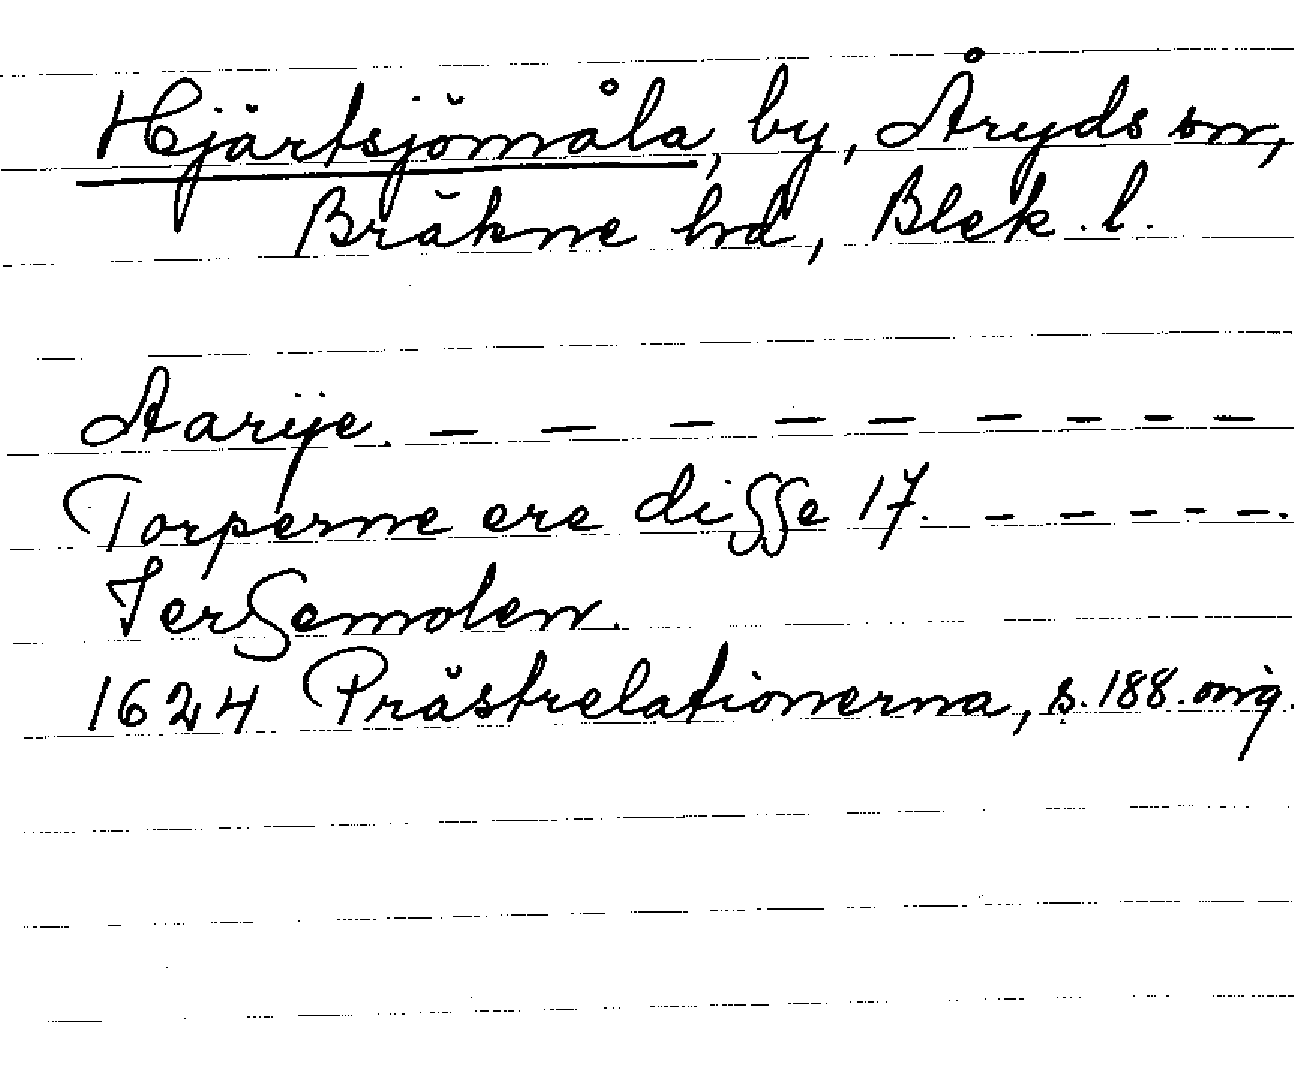 Hjärtsjömåla, by, Åryds sn,
Bräkne hd, Blek. l.
Aarÿe. — — — — — — — — —
Torperne ere disse 17. — — — — —.
Jersemolen.
1624 Prästrelationerna, s. 188. orig.